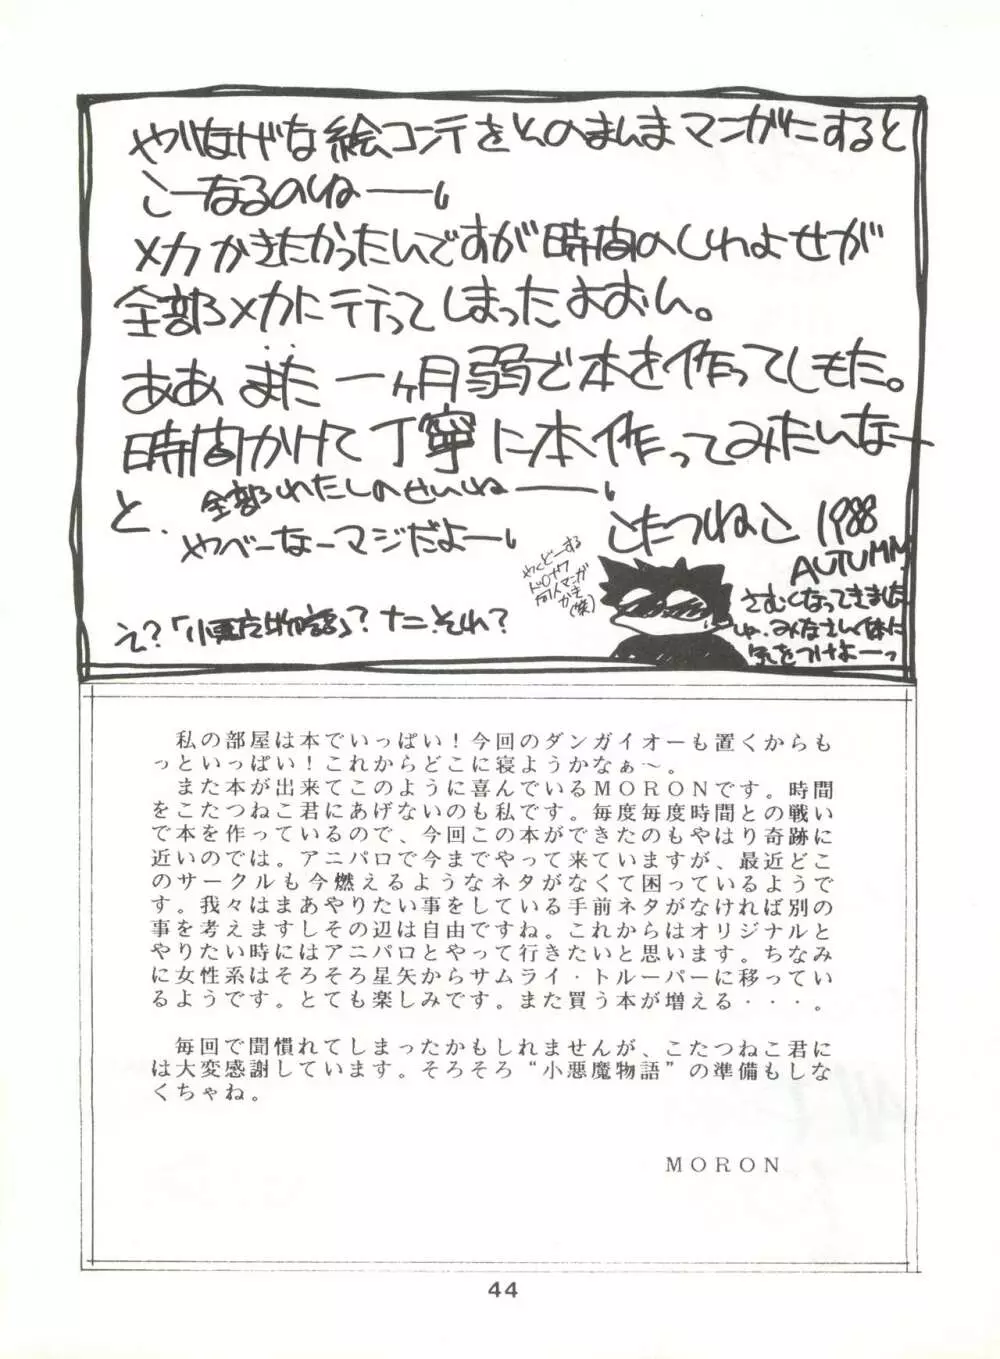 やりなげな絵コンテをそのまんまマンガにすると
こーなるのねーー。
メカかきたかったんですが時間のしわよせが
全部メカに行ってしまったよおん。
ああまた一ヶ月弱で本を作ってしもた。
時間かけて丁寧に本作ってみたいなー
と、全部わたしのせいねーー。
やべーなーマジだよー。
こたつねこ 1988
AUTUMN
さむくなってきました
みなさん体に
気をつけよーっ
え?「小悪魔物語」?ナニそれ?
私の部屋は本でいっぱい!今回のダンガイオーも置くからも
っといっぱい!これからどこに寝ようかなぁ〜。
また本が出来てこのように喜んでいるMORONです。時間
をこたつねこ君にあげないのも私です。毎度毎度時間との戦い
で本を作っているので、今回この本ができたのもやはり奇跡に
近いのでは。アニパロで今までやって来ていますが、最近どこ
のサークルも今燃えるようなネタがなくて困っているようで
す。我々はまあやりたい事をしている手前ネタがなければ別の
事を考えますしその辺は自由ですね。これからはオリジナルと
やりたい時にはアニパロとやって行きたいと思います。ちなみ
に女性系はそろそろ星矢からサムライ・トルーパーに移ってい
るようです。とても楽しみです。また買う本が増える・・・。
毎回で聞慣れてしまったかもしれませんが、こたつねこ君に
は大変感謝しています。そろそろ“小悪魔物語”の準備もしな
くちゃね。
MORON
44